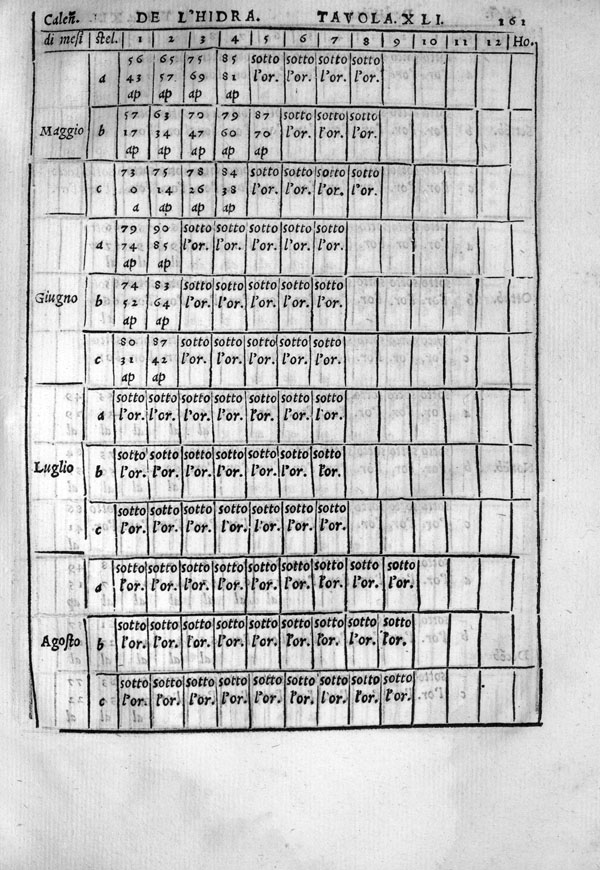 Caleñ. DE L'HIDRA. TAVOLA. XLI. 161
di mesi stel. 1 2 3 4 5 6 7 8 9 10 11 12 Ho.
56 65 75 85 sotto sotto sotto sotto
a 43 57 69 81 l'or. l'or. l'or. l'or.
ap ap ap ap
57 63 70 79 87 sotto sotto sotto
Maggio b 17 34 47 60 70 l'or. l'or. l'or.
ap ap ap ap ap
73 75 78 84 sotto sotto sotto sotto
c 0 14 26 38 l'or. l'or. l'or. l'or.
a ap ap ap
79 90 sotto sotto sotto sotto sotto
a 74 85 l'or. l'or. l'or. l'or. l'or.
ap ap
74 83 sotto sotto sotto sotto sotto
Giugno b 52 64 l'or. l'or. l'or. l'or. l'or.
ap ap
80 87 sotto sotto sotto sotto sotto
c 31 42 l'or. l'or. l'or. l'or. l'or.
ap ap
sotto sotto sotto sotto sotto sotto sotto
a l'or. l'or. l'or. l'or. l'or. l'or. l'or.
sotto sotto sotto sotto sotto sotto sotto
Luglio b l'or. l'or. l'or. l'or. l'or. l'or. l'or.
sotto sotto sotto sotto sotto sotto sotto
c l'or. l'or. l'or. l'or. l'or. l'or. l'or.
sotto sotto sotto sotto sotto sotto sotto sotto sotto
a l'or. l'or. l'or. l'or. l'or. l'or. l'or. l'or. l'or.
sotto sotto sotto sotto sotto sotto sotto sotto sotto
Agosto b l'or. l'or. l'or. l'or. l'or. l'or. l'or. l'or. l'or.
sotto sotto sotto sotto sotto sotto sotto sotto sotto
c l'or. l'or. l'or. l'or. l'or. l'or. l'or. l'or. l'or.